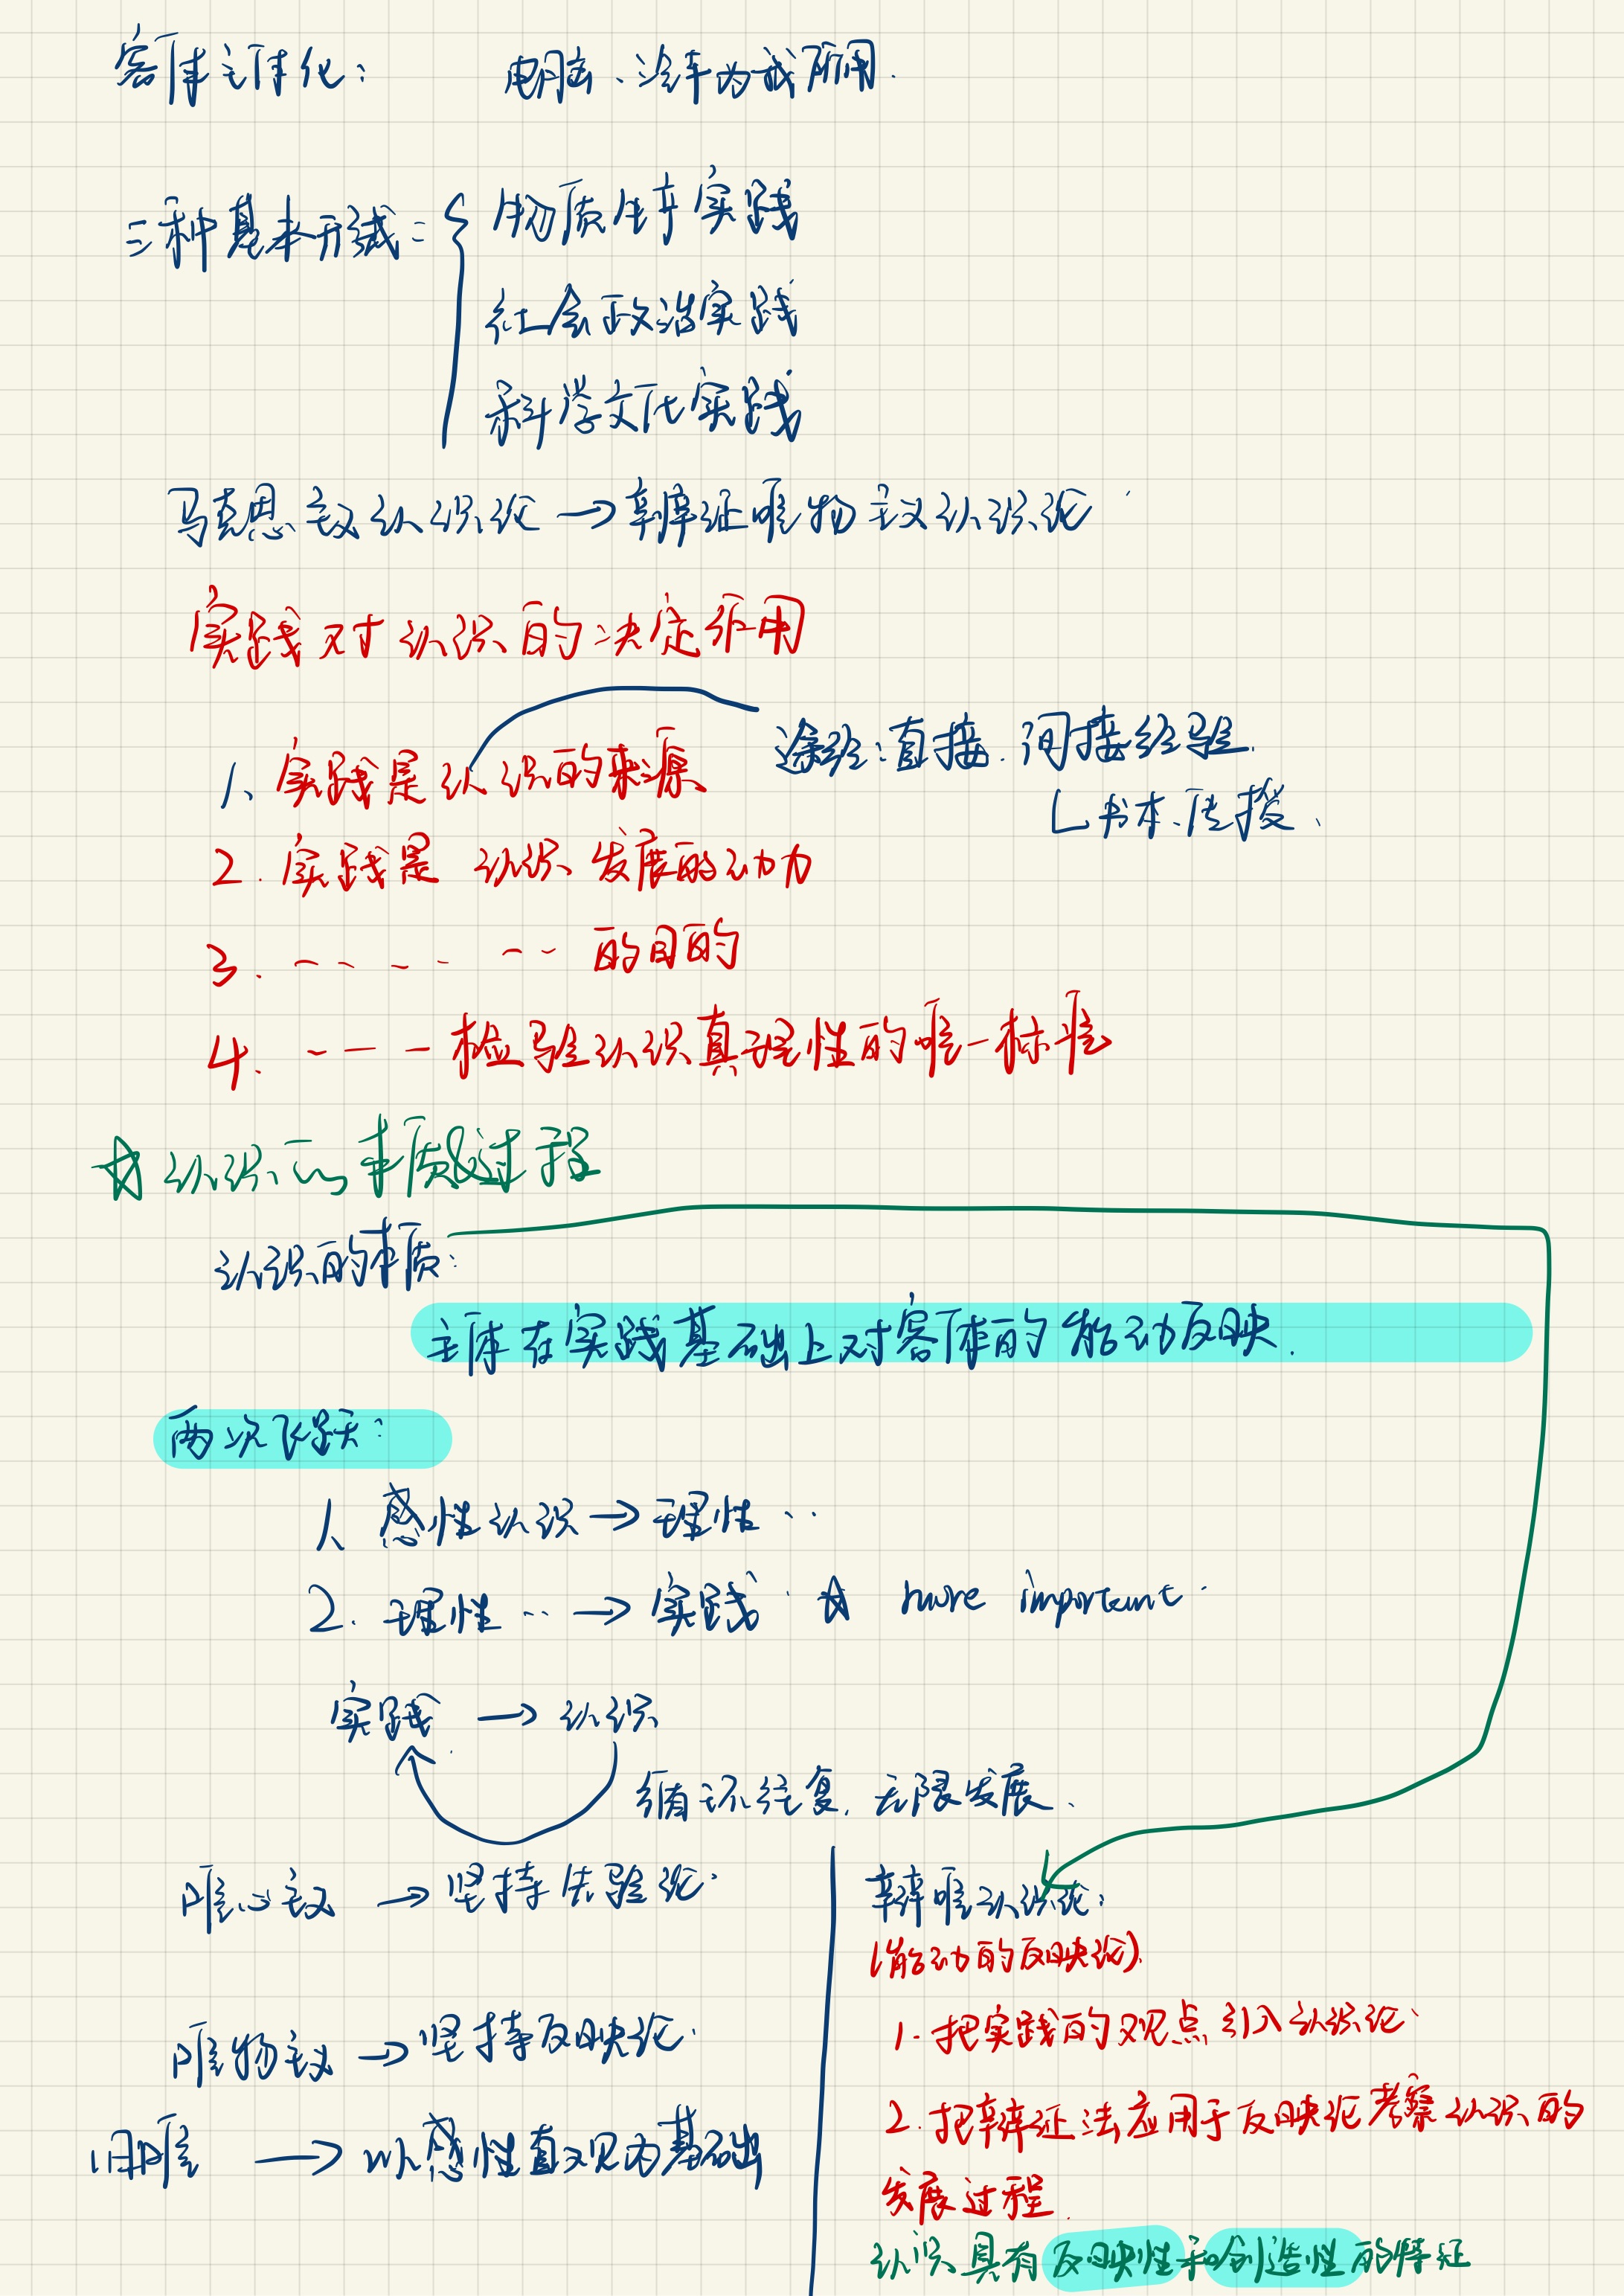 客体主体化: 电脑、汽车为我所用.
三种基本形式: 物质生产实践
社会政治实践
科学文化实践
马克思主义认识论→辩证唯物主义认识论
实践对认识的决定作用
1、实践是认识的来源
途径:直接.间接经验.
书本、传授、
2.实践是 认识发展的动力
3. ---- -- 的目的
4. ---- 检验认识真理性的唯一标准
☆认识的本质&过程
认识的本质:
主体在实践基础上对客体的能动反映.
两次飞跃:
1、感性认识→理性··
2.理性··→实践·☆ more important·
实践 → 认识
循环往复.无限发展、
唯心主义 → 坚持先验论·
唯物主义 → 坚持反映论·
旧唯 → 以感性直观为基础
辩唯认识论:
(能动的反映论).
1.把实践的观点引入认识论·
2.把辩证法应用于反映论考察认识的
发展过程.
认识具有反映性和创造性的特征